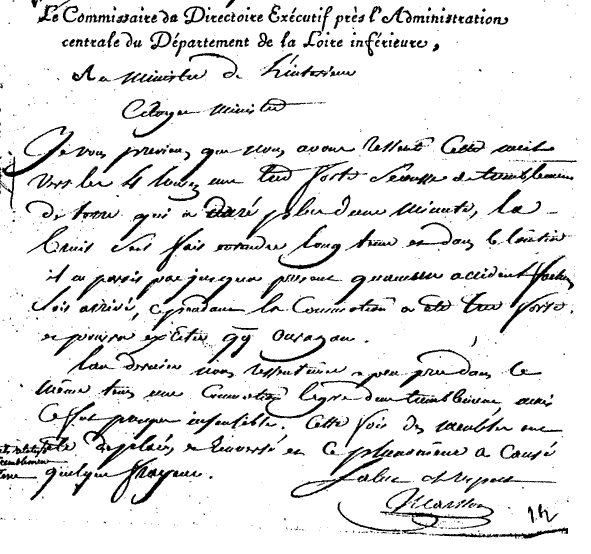 Le Commissaire du Directoire Exécutif près l'Administration
centrale du Département de la Loire inférieure,
Au Ministre de l'intérieur
Citoyen Ministre
Je vous previens que nous avons ressenti Cette nuit
vers les 4 heures une tres forte Secousse de tremblement
de terre qui a duré plus d'une Minute, le
bruit s'est fait entendre long tems et dans le lointain
il ne parois pas jusqu'a present qu'aucun accident
Soit arrivé, cependant la Commotion a été tres forte.
et pourra exciter qq ouragan.
L'an dernier nous ressentimes a peu près dans le
même tems une Commotion legere d'un tremblement mais
Ce fut presque insensible. Cette fois des meubles ont
été deplacés et renversés et ce phenomene a Causé
quelque frayeur.
Salut et respect
14